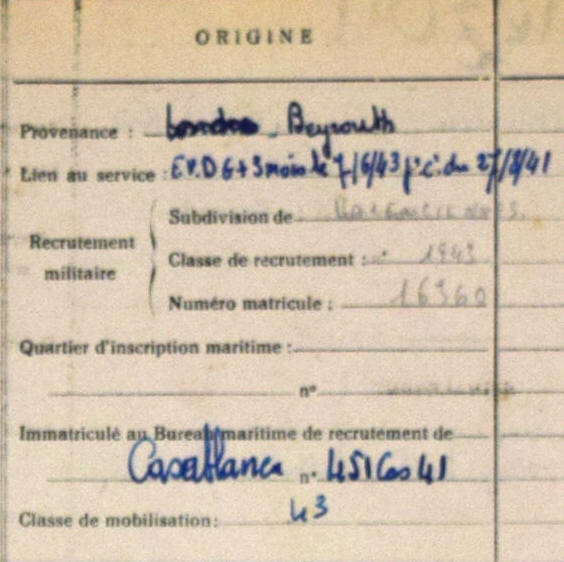 ORIGINE
Provenance : Londres Beyrouth
Lien au service : E.V.D G+3 mois le 7/6/43 p.c. du 27/8/41
Recrutement militaire
Subdivision de
Classe de recrutement : 1943
Numéro matricule : 16960
Quartier d'inscription maritime :
n°
Immatriculé au Bureau maritime de recrutement de
Casablanca n° 451 Cas 41
Classe de mobilisation : 43